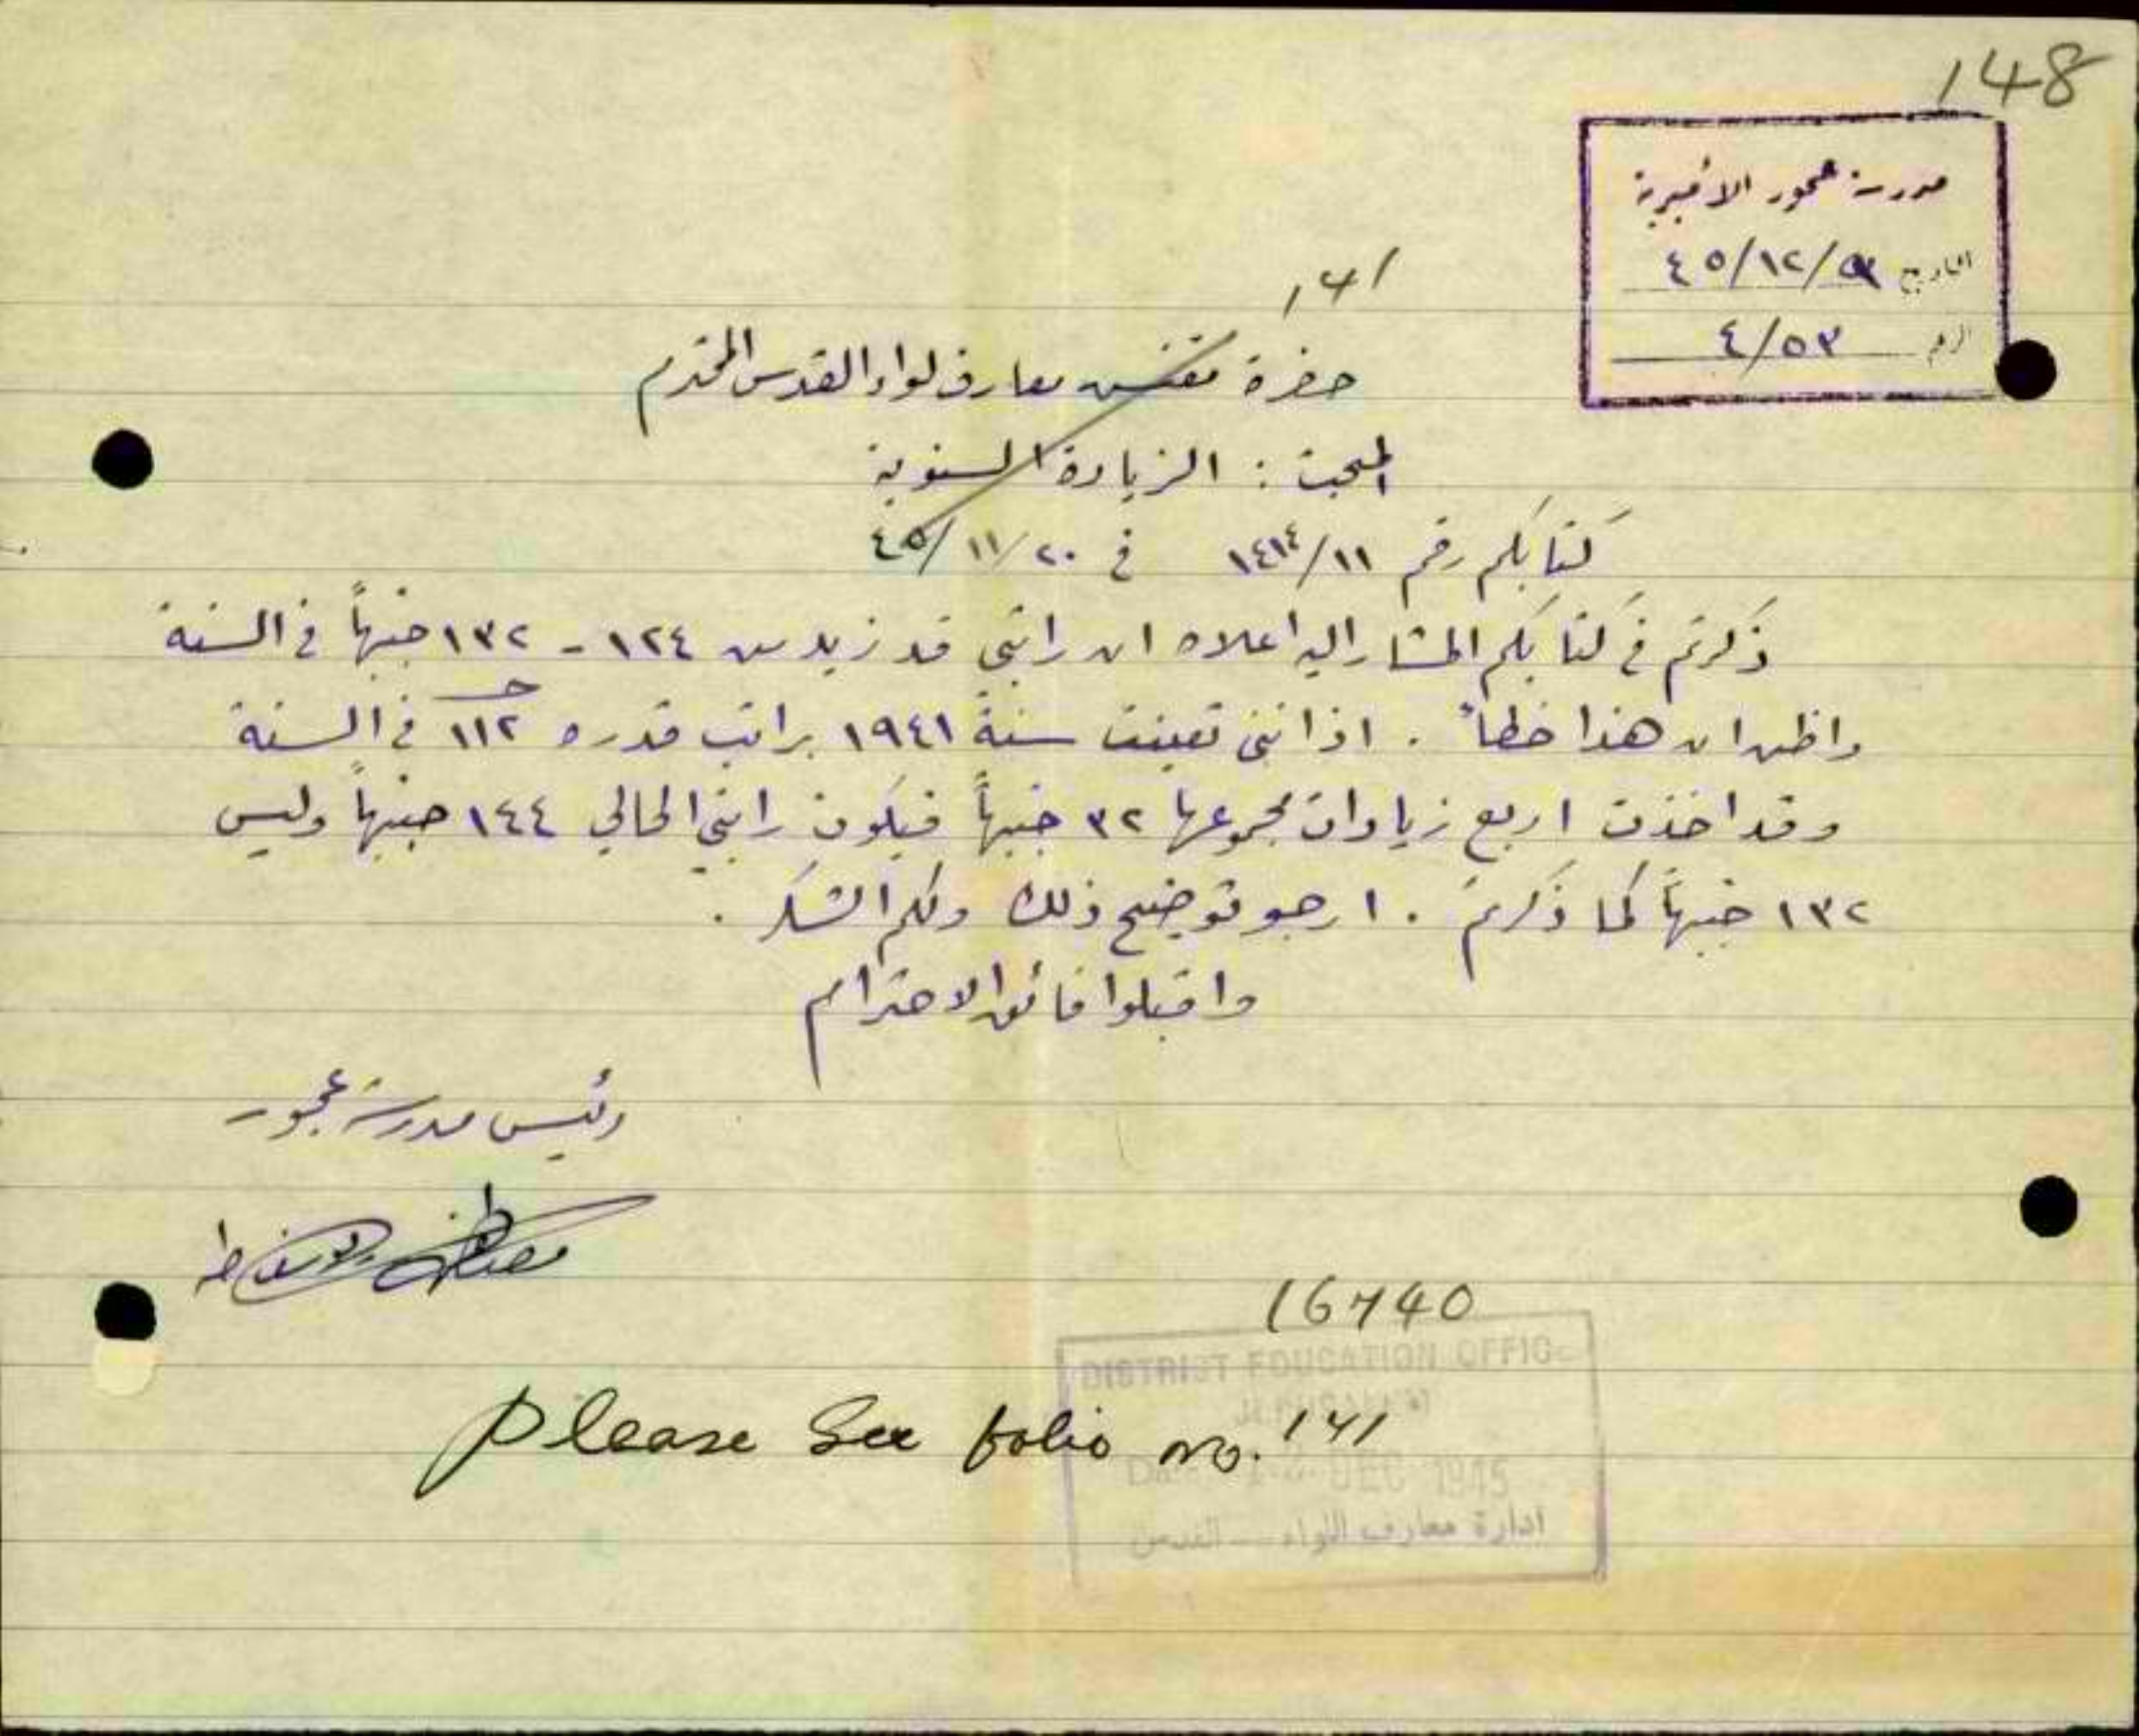 148
مدرسة عجور الاميرية
التاريخ /١٢/٤٥
الرقم ٤/٥٣
141
حضرة مفتش معارف لواء القدس المحترم
المبحث : الزيادة السنوية
كتابكم رقم ١٤١٤/١١ في ٤٥/١١/٢٠
ذكرتم في كتابكم المشار اليه اعلاه ان راتبي قد زيد من ١٢٤ - ١٣٢ جنيهاً في السنة
واظن ان هذا خطأ . اذ انني تعينت سنة ١٩٤١ براتب قدره ١١٢ جـ في السنة
وقد اخذت اربع زيادات مجموعها ٣٢ جنيهاً فيكون راتبي الحالي ١٤٤ جنيهاً وليس
١٣٢ جنيهاً كما ذكرتم . ارجو توضيح ذلك ولكم الشكر .
واقبلوا فائق الاحترام
رئيس مدرسة عجور
مصطفى يوسف طه
16740
DISTRICT EDUCATION OFFICE
JERUSALEM
Please See folio no. 141
DEC 1945
ادارة معارف اللواء — القدس